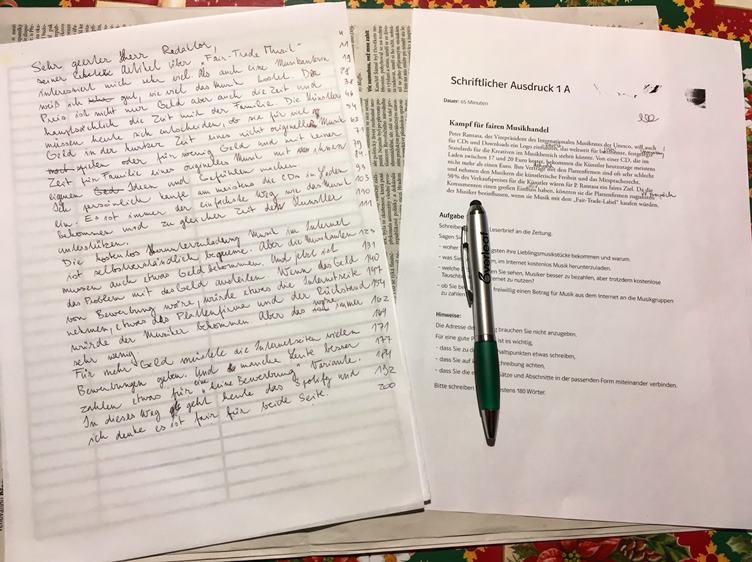 Sehr geerter Herr Redaktor,
seiner Artikel über „Fair-Trade Musik"
interessiert mich sehr weil als auch eine Musikantern
weiß ich gut, wie viel das Musik kostet. Der
Preis ist nicht nur Geld aber auch die Zeit und
hauptsächlich die Zeit mit der Familie. Die Künstler
müssen heute sich entscheiden, ob sie für viel
Geld in der kurzer Zeit eines nicht originelles Musik
spielen oder für wenig Geld und mit keiner
Zeit für Familie eines originelles Musik mit ihnen
eigenen Ideen und Gefühlen machen.
Ich persönlich kaufe am meistens die CDs im Laden
ein. Es ist immer der einfachste Weg wie das Musik
bekommen und zu gleicher Zeit des Künstler
unterstützen.
Die kostenlos Herunterzuladung Musik im Internet
ist selbstverständlich bequeme. Aber die Musikanten
müssen auch etwas Geld bekommen. Und jetzt ist
das Problem mit das Geld austeilen. Wenn das Geld
von Bewerbung wäre, würde etwas die Internetseite
nehmen, etwas die Plattenfirma und der Rückstand
würde der Musiker bekommen. Aber das wäre immer
sehr wenig.
Für mehr Geld müsste die Internetseiten vielen
Bewerbungen geben. Und manche Leute besser
zahlen etwas für eine „keine Bewerbung" Variante.
In dieses Weg geht heute das Spotify und
ich denke es ist fair für beide Seite.
4
11
19
28
38
46
54
63
71
79
103
111
123
131
140
147
154
162
169
171
177
184
192
200
Schriftlicher Ausdruck 1 A
Dauer: 65 Minuten
Kampf für fairen Musikhandel
Peter Ramsna, der Vizepräsident des Internationalen Musikrates der Unesco, will auch
für CD und Downloads ein Logo einführen, das weltweit für bestimmte, festgelegte
Standards für die Kreativen im Musikbereich stehen könnte. Von einer CD, die im
Laden zwischen 17 und 20 Euro kostet, bekommen die Künstler heutzutage meistens
nicht mehr als einen Euro. Ihre Verträge mit den Plattenfirmen sind oft sehr schlecht
und nehmen den Musikern die künstlerische Freiheit und das Mitspracherecht.
50 % des Verkaufspreises für die Künstler wären für P. Ramsna ein faires Ziel. Da die
Konsumenten einen großen Einfluss haben, könnten sie die Plattenfirmen zugunsten
der Musiker beeinflussen, wenn sie Musik mit dem „Fair-Trade-Label" kaufen würden.
Aufgabe
Schreiben Leserbrief an die Zeitung.
Sagen
- woher meistens Ihre Lieblingsmusikstücke bekommen und warum.
- was Sie im Internet kostenlos Musik herunterzuladen.
- welche Sie sehen, Musiker besser zu bezahlen, aber trotzdem kostenlose
Tauschbörsen Internet zu nutzen?
- ob Sie freiwillig einen Betrag für Musik aus dem Internet an die Musikgruppen
zu zahlen
Hinweise:
Die Adresse der brauchen Sie nicht anzugeben.
Für eine gute ist es wichtig,
- dass Sie zu Inhaltspunkten etwas schreiben,
- dass Sie auf achten,
- dass Sie die Sätze und Abschnitte in der passenden Form miteinander verbinden.
Bitte schreiben mindestens 180 Wörter.
Overleaf